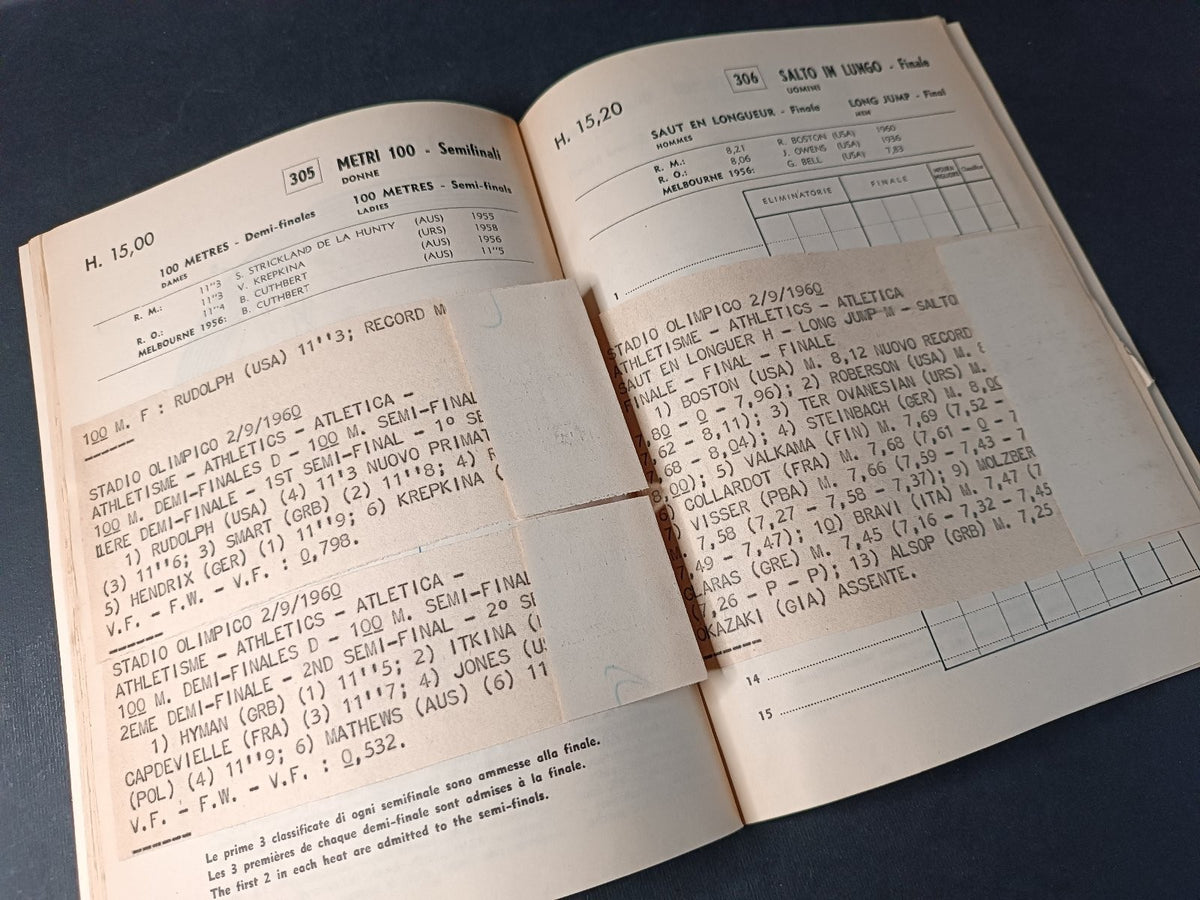 H. 15,00
305 METRI 100 - Semifinali
DONNE
100 METRES - Demi-finales 100 METRES - Semi-finals
DAMES LADIES
R. M.: 11"3 S. STRICKLAND DE LA HUNTY (AUS) 1955
11"3 V. KREPKINA (URS) 1958
R. O.: 11"4 B. CUTHBERT (AUS) 1956
MELBOURNE 1956: B. CUTHBERT (AUS) 11"5
100 M. F : RUDOLPH (USA) 11''3; RECORD M
STADIO OLIMPICO 2/9/1960
ATHLETISME - ATHLETICS - ATLETICA -
100 M. DEMI-FINALES D - 100 M. SEMI-FINAL
1ERE DEMI-FINALE - 1ST SEMI-FINAL - 1º SE
1) RUDOLPH (USA) (4) 11''3 NUOVO PRIMAT
(3) 11''6; 3) SMART (GRB) (2) 11''8; 4)
5) HENDRIX (GER) (1) 11''9; 6) KREPKINA (
V.F. - F.W. - V.F. : 0,798.
STADIO OLIMPICO 2/9/1960
ATHLETISME - ATHLETICS - ATLETICA -
100 M. DEMI-FINALES D - 100 M. SEMI-FINAL
2EME DEMI-FINALE - 2ND SEMI-FINAL - 2º SE
1) HYMAN (GRB) (1) 11''5; 2) ITKINA (
CAPDEVIELLE (FRA) (3) 11''7; 4) JONES (US
(POL) (4) 11''9; 6) MATHEWS (AUS) (6) 11
V.F. - F.W. - V.F. : 0,532.
Le prime 3 classificate di ogni semifinale sono ammesse alla finale.
Les 3 premières de chaque demi-finale sont admises à la finale.
The first 2 in each heat are admitted to the semi-finals.
H. 15,20
306 SALTO IN LUNGO - Finale
UOMINI
SAUT EN LONGUEUR - Finale LONG JUMP - Final
HOMMES MEN
R. M.: 8,21 R. BOSTON (USA) 1960
R. O.: 8,06 J. OWENS (USA) 1936
MELBOURNE 1956: G. BELL (USA) 7,83
ELIMINATORIE FINALE
1
STADIO OLIMPICO 2/9/1960
ATHLETISME - ATHLETICS - ATLETICA
SAUT EN LONGUER H - LONG JUMP M - SALTO
FINALE - FINAL - FINALE
1) BOSTON (USA) M. 8,12 NUOVO RECORD
7,80 - 0 - 7,96); 2) ROBERSON (USA) M.
7,62 - 8,11); 3) TER OVANESIAN (URS) M.
7,68 - 8,04); 4) STEINBACH (GER) M. 8,00
8,00); 5) VALKAMA (FIN) M. 7,69 (7,52 -
6) COLLARDOT (FRA) M. 7,68 (7,61 - 0 - 7
7) VISSER (PBA) M. 7,66 (7,59 - 7,43 - 7
M. 7,58 (7,27 - 7,58 - 7,37); 9) MOLZBER
7,49 - 7,47); 10) BRAVI (ITA) M. 7,47 (7
GLARAS (GRE) M. 7,45 (7,16 - 7,32 - 7,45
(7,26 - P - P); 13) ALSOP (GRB) M. 7,25
OKAZAKI (GIA) ASSENTE.
14
15